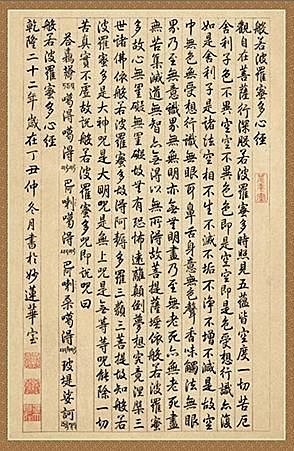 般若波羅蜜多心經
觀自在菩薩行深般若波羅蜜多時照見五蘊皆空度一切苦厄
舍利子色不異空空不異色色即是空空即是色受想行識亦復
如是舍利子是諸法空相不生不滅不垢不淨不增不減是故空
中無色無受想行識無眼耳鼻舌身意無色聲香味觸法無眼
界乃至無意識界無無明亦無無明盡乃至無老死亦無老死盡
無苦集滅道無智亦無得以無所得故菩提薩埵依般若波羅蜜
多故心無罣礙無罣礙故無有恐怖遠離顛倒夢想究竟涅槃三
世諸佛依般若波羅蜜多故得阿耨多羅三藐三菩提故知般若
波羅蜜多是大神咒是大明咒是無上咒是無等等咒能除一切
苦真實不虛故說般若波羅蜜多咒即說咒曰
噶得噶得喇噶得喇桑噶得玻提娑訶
般若波羅蜜多心經
乾隆二十二年歲在丁丑仲冬月書於妙蓮華室